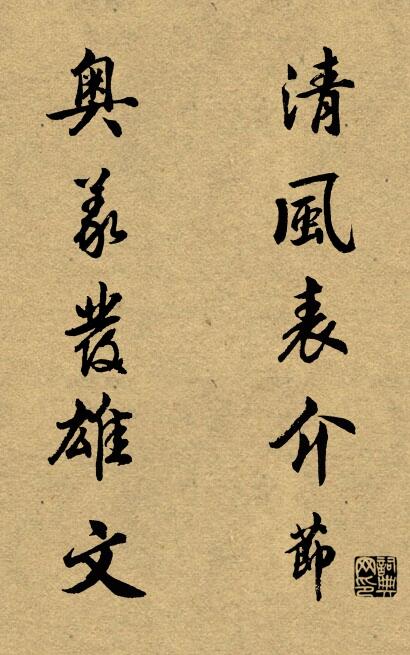 清風表介節
奥義發雄文
詞典網印